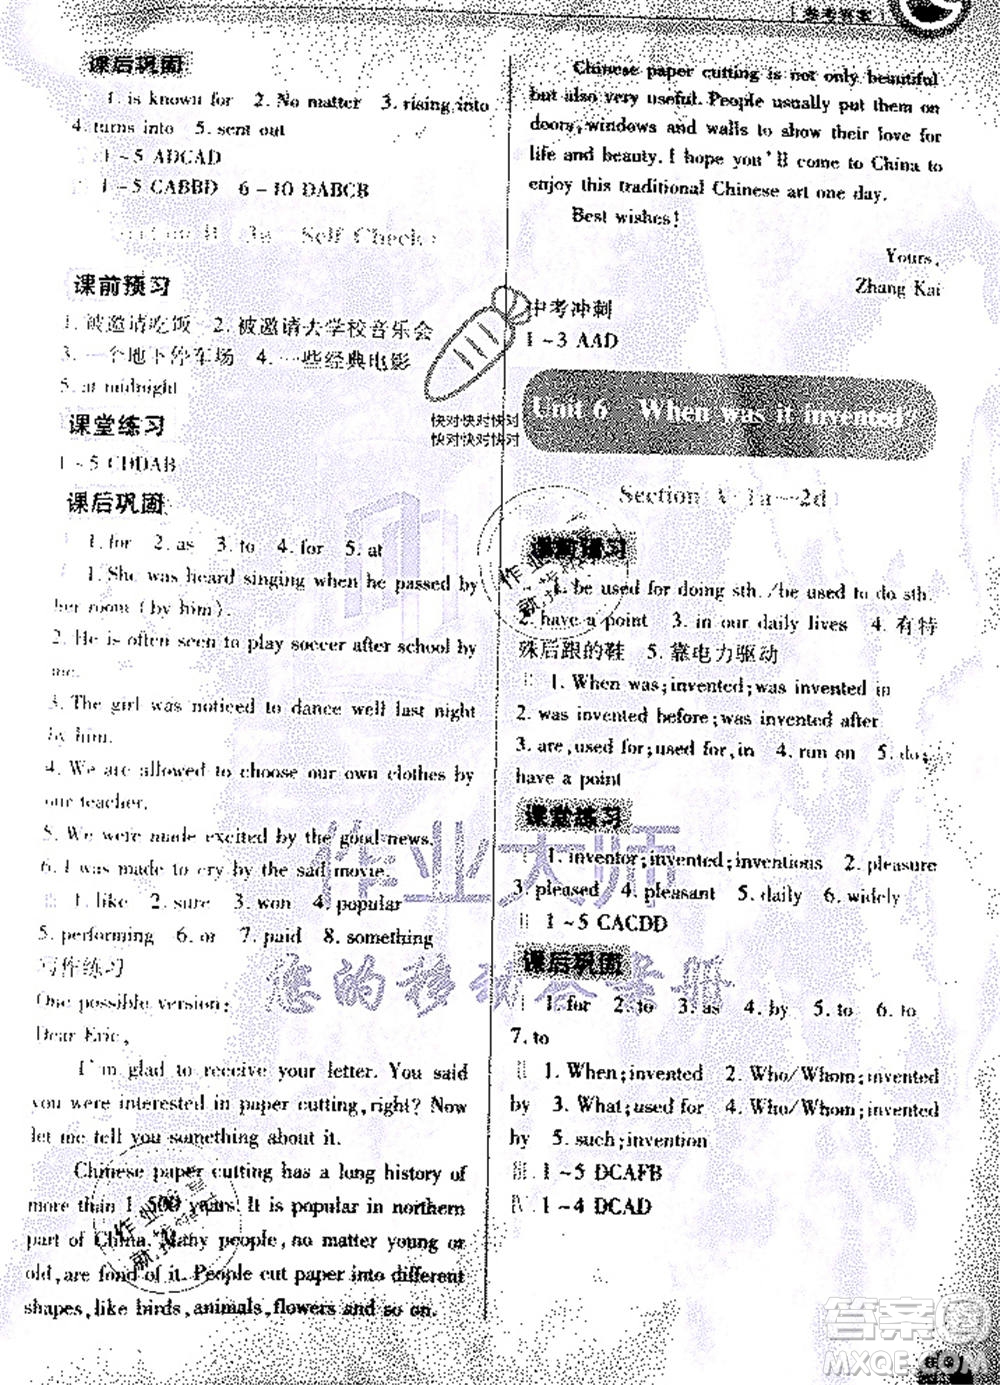 参考答案
课后巩固
1. is known for 2. No matter 3. rising into
4. turns into 5. sent out
1~5 ADCAD
1~5 CABBD 6~10 DABCB
3a Self Check
课前预习
1. 被邀请吃饭 2. 被邀请去学校音乐会
3. 一个地下停车场 4. 一些经典电影
5. at midnight
课堂练习
1~5 CDDAB
课后巩固
1. for 2. as 3. to 4. for 5. at
1. She was heard singing when he passed by
her room (by him).
2. He is often seen to play soccer after school by
me.
3. The girl was noticed to dance well last night
by him.
4. We are allowed to choose our own clothes by
our teacher.
5. We were made excited by the good news.
6. I was made to cry by the sad movie.
1. like 2. sure 3. won 4. popular
5. performing 6. or 7. paid 8. something
写作练习
One possible version:
Dear Eric,
I'm glad to receive your letter. You said
you were interested in paper cutting, right? Now
let me tell you something about it.
Chinese paper cutting has a long history of
more than 1 500 years. It is popular in northern
part of China. Many people, no matter young or
old, are fond of it. People cut paper into different
shapes, like birds, animals, flowers and so on.
Chinese paper cutting is not only beautiful
but also very useful. People usually put them on
doors, windows and walls to show their love for
life and beauty. I hope you'll come to China to
enjoy this traditional Chinese art one day.
Best wishes!
Yours,
Zhang Kai
中考冲刺
1~3 AAD
Unit 6 When was it invented?
Section A 1a~2d
课前预习
1. be used for doing sth. /be used to do sth.
2. have a point 3. in our daily lives 4. 有特
殊后跟的鞋 5. 靠电力驱动
Ⅱ 1. When was; invented; was invented in
2. was invented before; was invented after
3. are, used for; used for, in 4. run on 5. do;
have a point
课堂练习
1. inventor; invented; inventions 2. pleasure
3. pleased 4. pleasant 5. daily 6. widely
Ⅱ 1~5 CACDD
课后巩固
1. for 2. to 3. as 4. by 5. as 6. to
7. to
Ⅱ 1. When; invented 2. Who/Whom; invented
by 3. What; used for 4. Who/Whom; invented
by 5. such; invention
Ⅲ 1~5 DCAFB
Ⅳ 1~4 DCAD
快对快对快对
快对快对快对
作业大师
答案圈
MXQE.COM